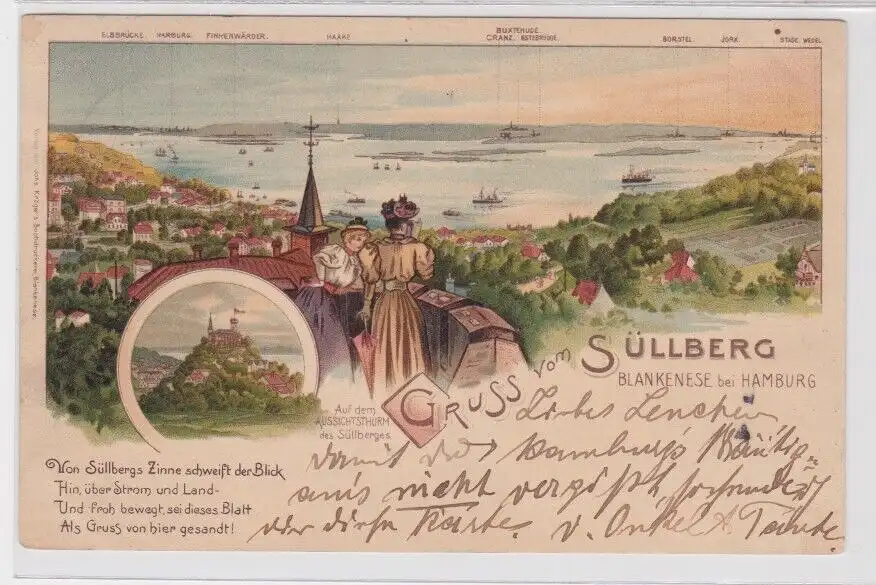 ELBBRÜCKE. HARBURG. FINKENWÄRDER. HAAKE. BUXTEHUDE. CRANZ. ESTEBRÜGGE. BORSTEL. JORK. STADE. WEDEL.
Verlag von Johs. Kröger's Buchdruckerei, Blankenese.
GRUSS vom SÜLLBERG
BLANKENESE bei HAMBURG
Auf dem
AUSSICHTSTHURM
des Süllberges.
Von Süllbergs Zinne schweift der Blick
Hin, über Strom und Land-
Und froh bewegt, sei dieses Blatt
Als Gruss von hier gesandt!
Liebes Lenchen
damit du Hamburg's
nicht vergißt sendet
dir diese Karte. v. Onkel & Tante.